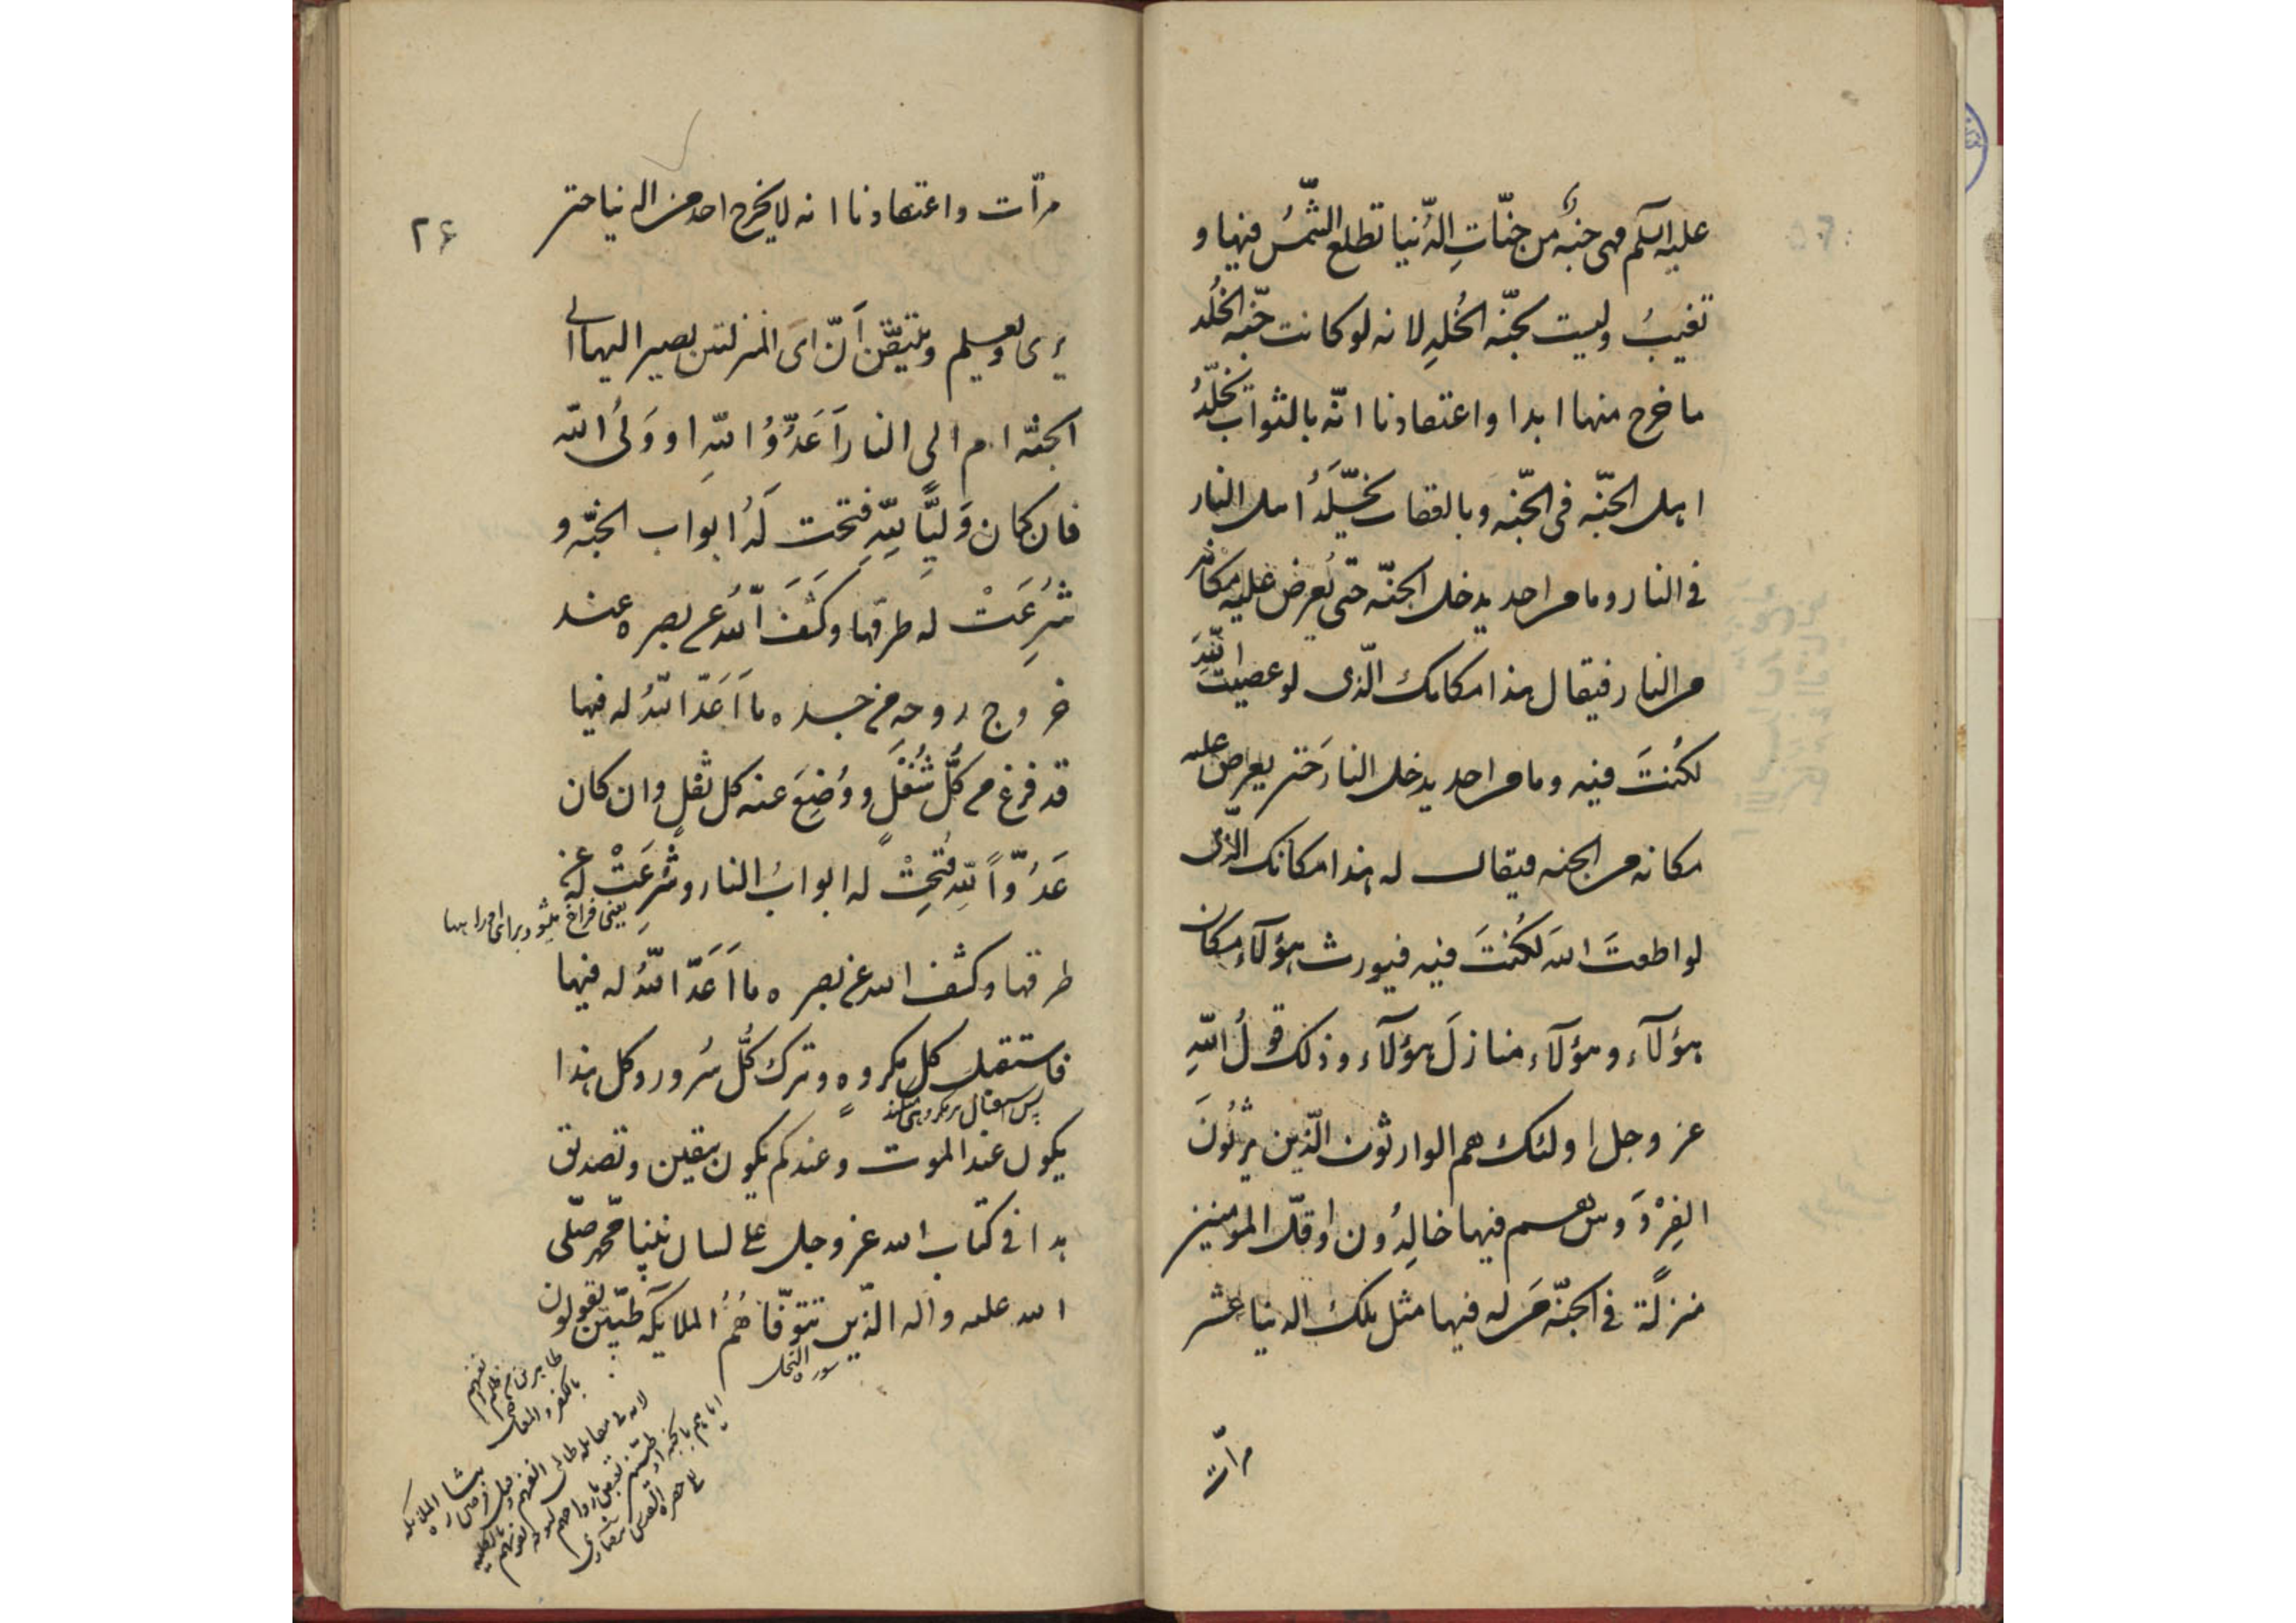 عليه السلم فهى جنة من جنّات الدّنيا تطلع الشّمسُ فيها و
تغيبُ وليست بجنّة الخُلدِ لانه لو كانت جنّة الخُلد
ما خرج منها ابدا واعتقادنا انّه بالثواب يخلّدُ
اهل الجنّه فى الجنّه وبالعقاب يخلّدُ اهل النار
فى النار وما من احد يدخل الجنّه حتى يُعرض عليه مكانه
من النار فيقال هذا مكانك الّذى لو عصيت اللّهَ
لكُنتَ فيه وما من احد يدخل النار حتى يعرض عليه
مكانه من الجنه فيقال له هذا مكانك الّذى
لو اطعتَ اللهَ لكُنتَ فيه فيورث هؤلآء مكان
هؤلآء وهؤلآء منازلَ هؤلآء وذلك قولُ اللّهِ
عز وجل اولئك هم الوارثون الّذين يرثُونَ
الفِرْدَوس هم فيها خالِدُون واقلّ المومنين
منزلةً فى الجنّه من له فيها مثل ملك الدنيا عشر
مرآت
٢۶
مرّات واعتقادنا انه لا يخرج احد من الدنيا حتى
يرى ويعلم ويتيقّن اَنّ اىَ المنزلتين يصير اليها الى
الجنّه ام الى النار اَعَدُّوُ اللّهِ او وَلىُ اللّه
فان كان وَليًّا للّهِ فتحت لَهُ ابواب الجنّه و
شُرِعَتْ له طرقها وكَشَفَ اللّهُ عن بصره عند
خروج روحهِ من جسده ما اَعَدّ اللّهُ له فيها
قد فرغ من كُلّ شُغْلٍ ووُضِعَ عنه كل ثقلٍ وان كان
عَدُوّاً للّهِ فُتِحتْ له ابوابُ النار وشُرِعَتْ لَهُ
يعنى فراخ ميشود براى او راهها
طرقها وكشف الله عن بصره ما اَعَدّ اللّهُ له فيها
فاستقبل كل مكروهٍ وترك كُلّ سُرور وكل هذا
پس استقبال هر مكروهى كند
يكون عند الموت وعندكم يكون بيقين وتصديق
هذا فى كتاب الله عز وجل على لسان نبيّنا محّمد صلّى
الله عليه واله الّذين تتوفّاهُمُ الملايكه طيّبين يقولون
سوره النحل
طاهرين من ظلم انفسهم
بالكفر والمعاصى